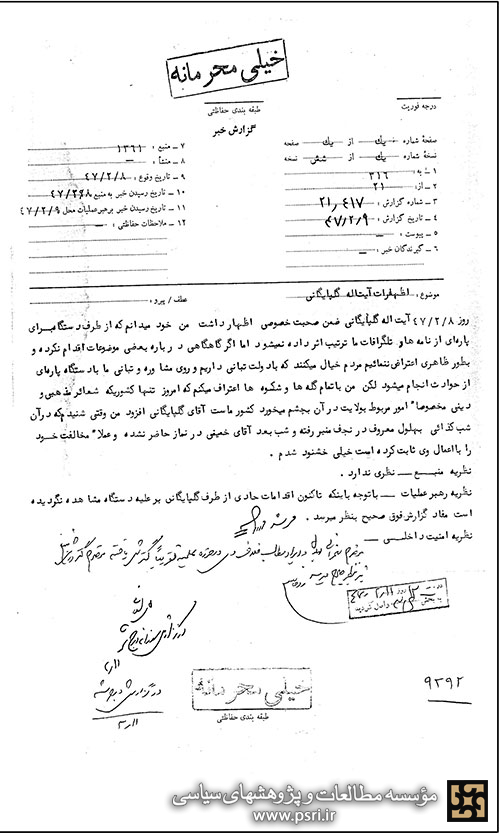 خیلی محرمانه
درجه فوریت
طبقه بندی حفاظتی
گزارش خبر
صفحهٔ شماره یک از یک صفحه
نسخهٔ شماره یک از شش نسخه
۱ - به: ۳۱۶
۲ - از: ۲۱
۳ - شماره گزارش: ۲۱٫۴۱۷
۴ - تاریخ گزارش: ۴۷/۲/۹
۵ - پیوست: –
۶ - گیرندگان خبر: –
۷ - منبع: ۱۳۶۱
۸ - منشأ: –
۹ - تاریخ وقوع: ۴۷/۲/۸
۱۰ - تاریخ رسیدن خبر به منبع ۴۷/۲/۸
۱۱ - تاریخ رسیدن خبر برهبرعملیات محل ۴۷/۲/۹
۱۲ - ملاحظات حفاظتی: –
موضوع: اظهارات آیت اله گلپایگانی عطف / پیرو:
روز ۴۷/۲/۸ آیت اله گلپایگانی ضمن صحبت خصوصی اظهار داشت من خود میدانم که از طرف دستگاه برای
پاره‌ای از نامه ها و تلگرافات ما ترتیب اثر داده نمیشود اما اگر گاهگاهی درباره بعضی موضوعات اقدام نکرده و
بطور ظاهری اعتراضی ننمائیم مردم خیال میکنند که با دولت تبانی داریم و روی مشاوره و تبانی ما با دستگاه پاره‌ای
از حوادث انجام میشود لکن من با تمام گله ها و شکوه ها اعتراف میکنم که امروز تنها کشوریکه شعائر مذهبی و
دینی مخصوصا" امور مربوط بولایت در آن بچشم میخورد کشور ماست آقای گلپایگانی افزود من وقتی شنیدم که در آن
شب کذائی بهلول معروف در نجف منبر رفته و شب بعد آقای خمینی در نماز حاضر نشده و عملا" مخالفت خود
را با اعمال وی ثابت کرده است خیلی خشنود شدم .
نظریه منبع - نظری ندارد .
نظریه رهبر عملیات - با توجه باینکه تاکنون اقدامات حادی از طرف گلپایگانی بر علیه دستگاه مشاهده نگردیده
است مفاد گزارش فوق صحیح بنظر میرسد .
نظریه امنیت داخلی -
خیلی محرمانه
طبقه بندی حفاظتی
۹۲۹۲
مؤسسه مطالعات و پژوهشهای سیاسی
www.psri.ir